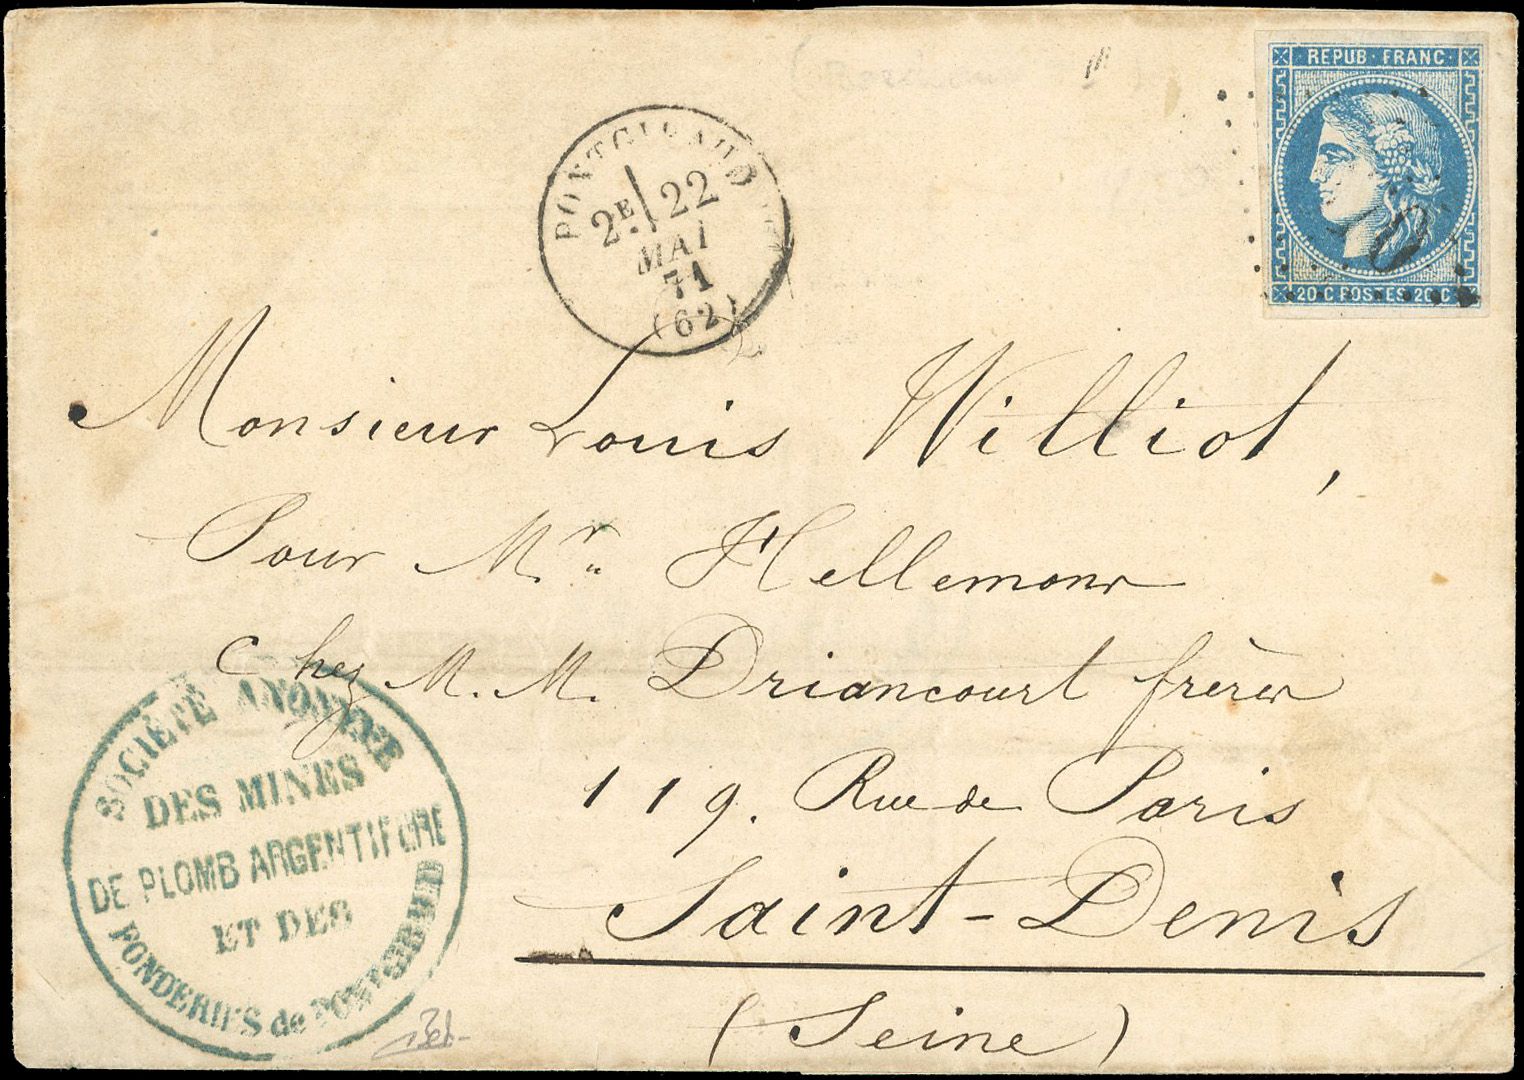 REPUB·FRANC·
20·C POSTES 20·C
PONTGIBAUD
2E 22
MAI
71
(62)
Monsieur Louis Williot,
Pour Mr. Hellemonr
Chez M. M. Driancourt frères
119. Rue de Paris
Saint-Denis
(Seine)
SOCIÉTÉ ANONYME
DES MINES
DE PLOMB ARGENTIFERE
ET DES
FONDERIES de PONTGIBAUD